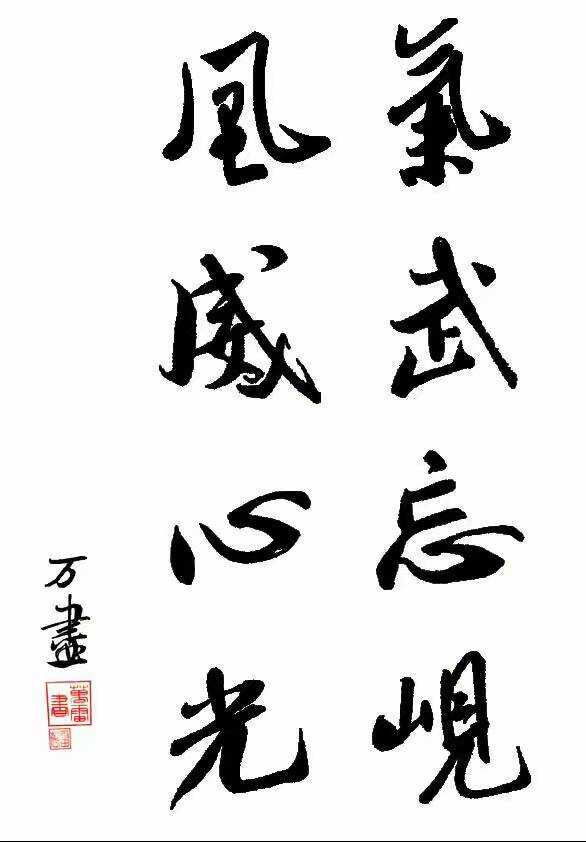 氣武忘峴
風威心光
万盡